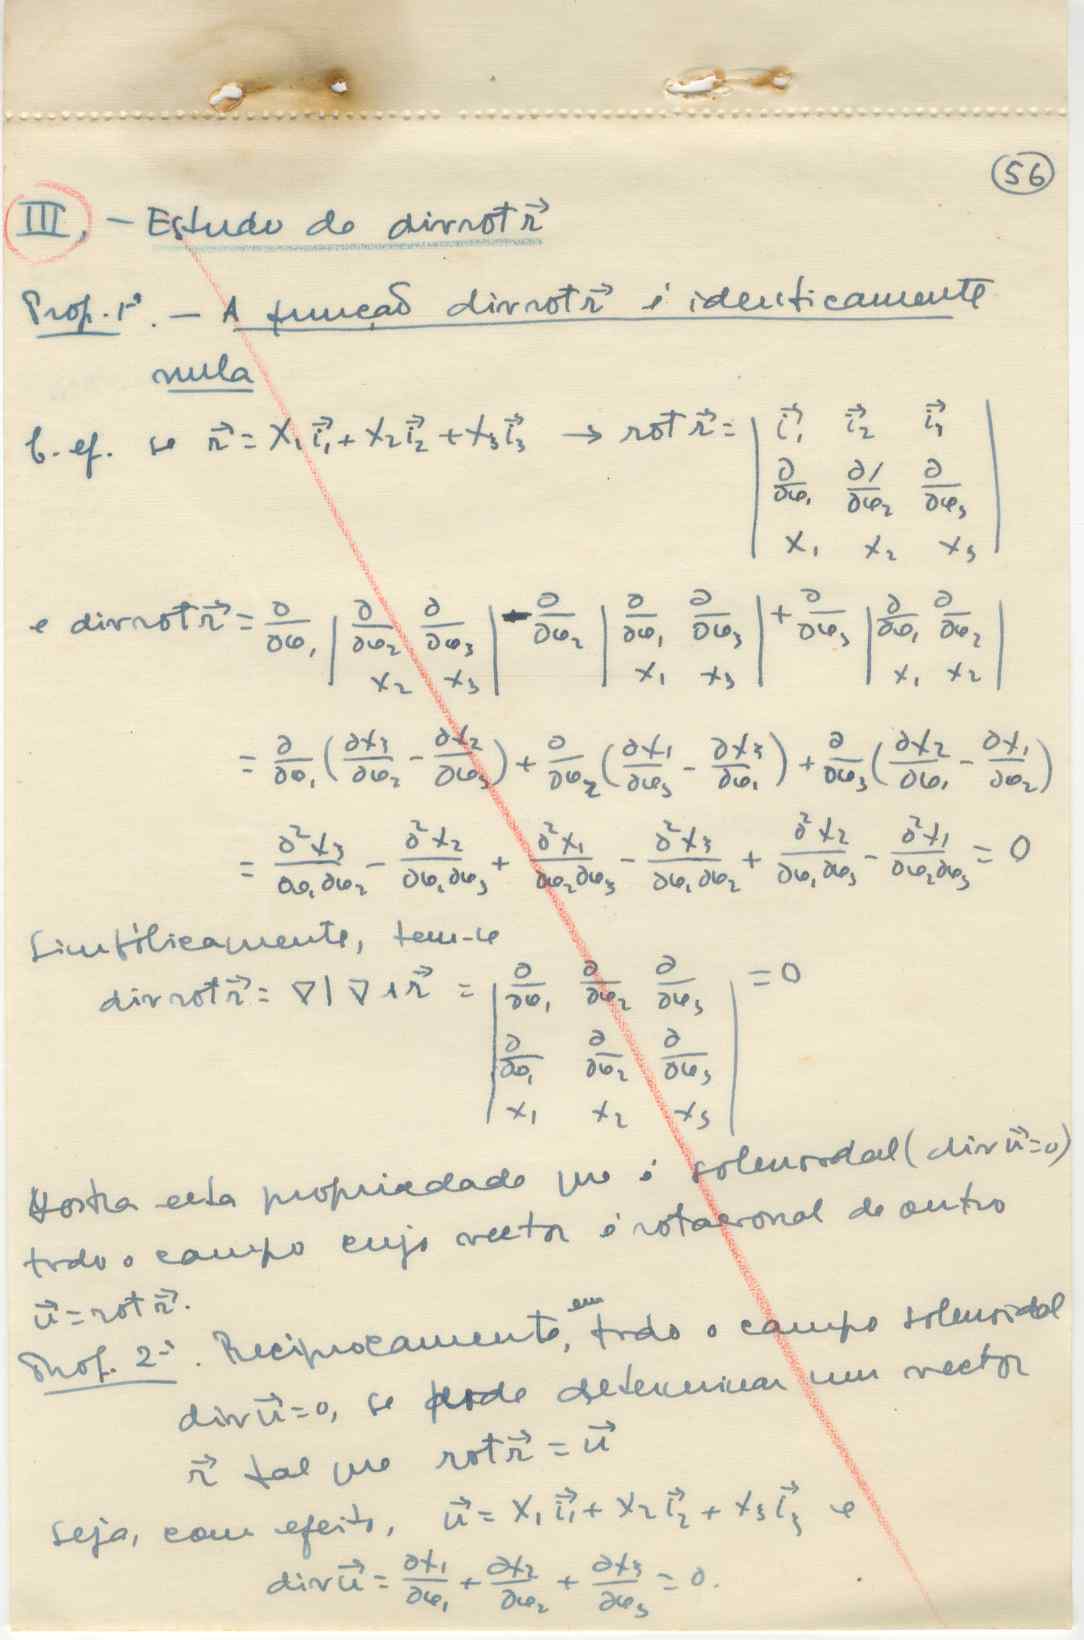 56
III. - Estudo do div rot r⃗
Prop. 1ª. - A função div rot r⃗ é identicamente
nula
C. ef. se r⃗ = X₁ i⃗₁ + X₂ i⃗₂ + X₃ i⃗₃ → rot r⃗ = | i⃗₁ i⃗₂ i⃗₃ |
| ∂/∂φ₁ ∂/∂φ₂ ∂/∂φ₃ |
| X₁ X₂ X₃ |
e div rot r⃗ = ∂/∂φ₁ | ∂/∂φ₂ ∂/∂φ₃ | - ∂/∂φ₂ | ∂/∂φ₁ ∂/∂φ₃ | + ∂/∂φ₃ | ∂/∂φ₁ ∂/∂φ₂ |
| X₂ X₃ | | X₁ X₃ | | X₁ X₂ |
= ∂/∂φ₁ (∂X₃/∂φ₂ - ∂X₂/∂φ₃) + ∂/∂φ₂ (∂X₁/∂φ₃ - ∂X₃/∂φ₁) + ∂/∂φ₃ (∂X₂/∂φ₁ - ∂X₁/∂φ₂)
= ∂²X₃/∂φ₁∂φ₂ - ∂²X₂/∂φ₁∂φ₃ + ∂²X₁/∂φ₂∂φ₃ - ∂²X₃/∂φ₁∂φ₂ + ∂²X₂/∂φ₁∂φ₃ - ∂²X₁/∂φ₂∂φ₃ = 0
Simbólicamente, tem-se
div rot r⃗ = ∇ | ∇ ∧ r⃗ = | ∂/∂φ₁ ∂/∂φ₂ ∂/∂φ₃ | = 0
| ∂/∂φ₁ ∂/∂φ₂ ∂/∂φ₃ |
| X₁ X₂ X₃ |
Mostra esta propriedade que é solenoidal (div u⃗ = 0)
todo o campo cujo vector é rotacional de outro
u⃗ = rot r⃗.
Prop. 2ª. Reciprocamente, em todo o campo solenoidal
div u⃗ = 0, se pode determinar um vector
r⃗ tal que rot r⃗ = u⃗
Seja, com efeito, u⃗ = X₁ i⃗₁ + X₂ i⃗₂ + X₃ i⃗₃ e
div u⃗ = ∂X₁/∂φ₁ + ∂X₂/∂φ₂ + ∂X₃/∂φ₃ = 0.